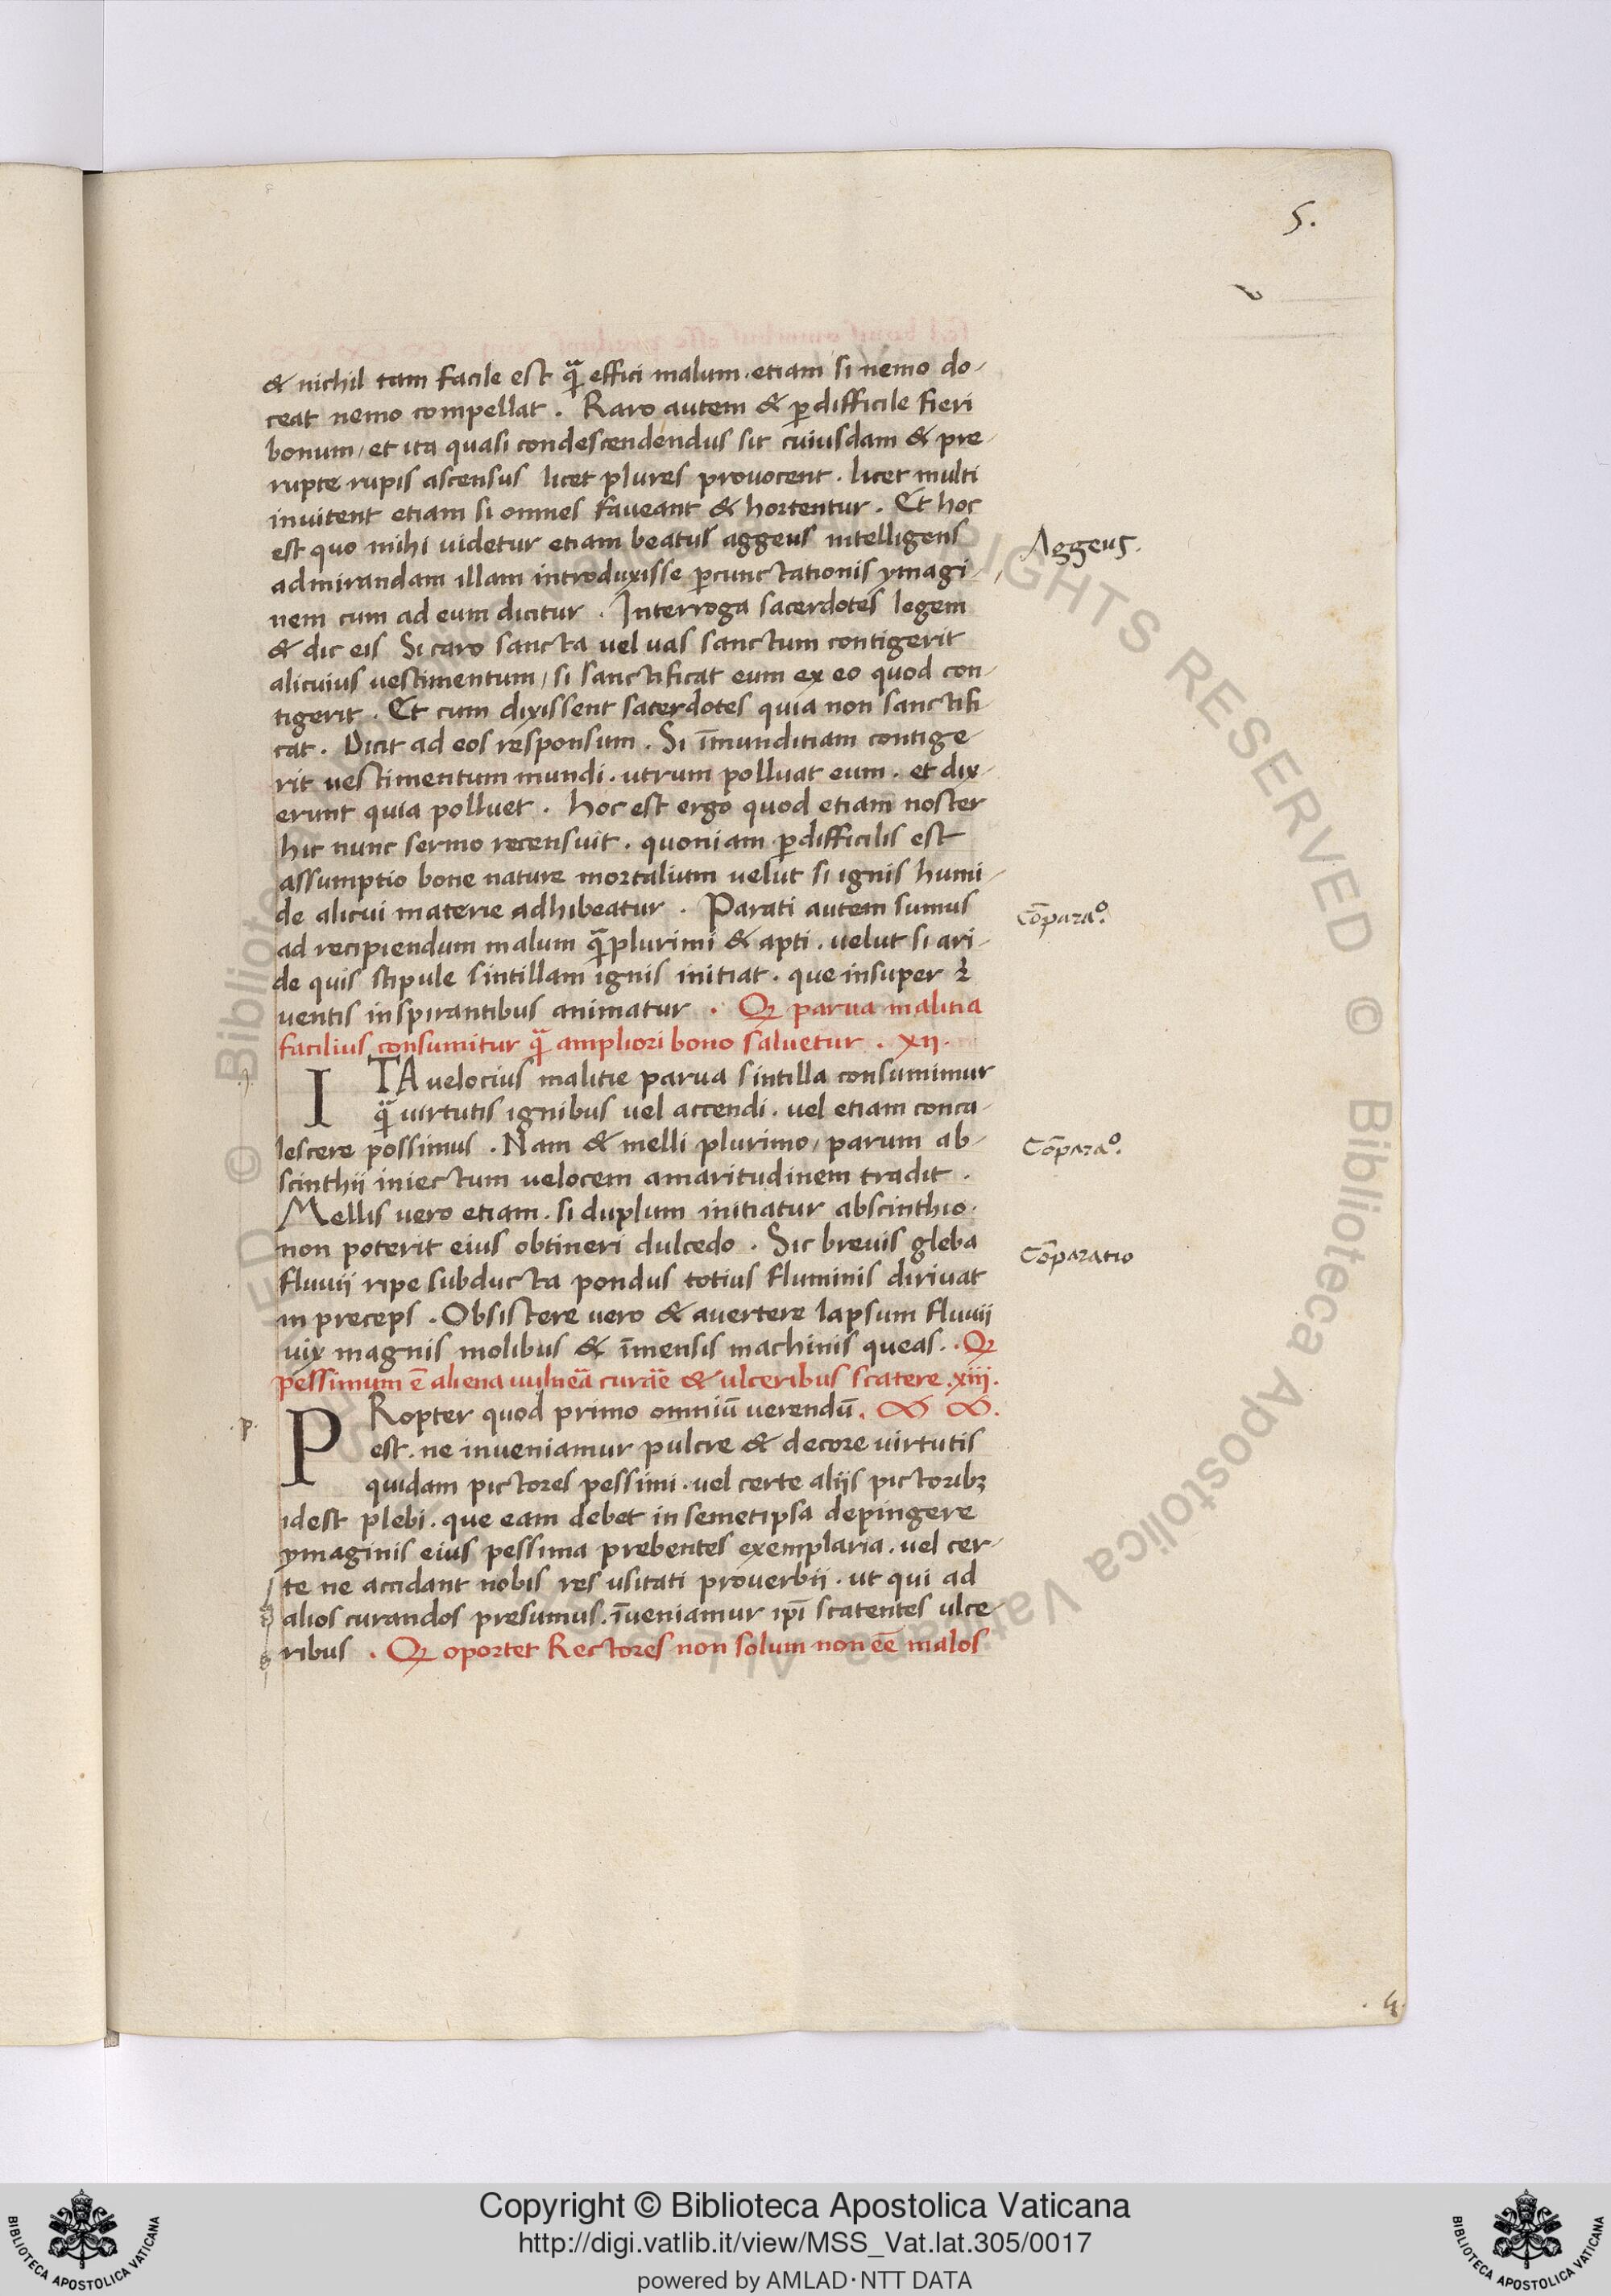 5.
& nichil tam facile est qã effici malum. etiam si nemo do-
ceat nemo compellat. Raro autem & ꝑdifficile fieri
bonum, et ita quasi condescendendus sit cuiusdam & pre-
rupte rupis ascensus licet plures provocent. licet multi
invitent etiam si omnes faveant & hortentur. Et hoc
est quo mihi videtur etiam beatus aggeus intelligens
Aggeus.
admirandam illam introduxisse ꝑcunctationis ymagi-
nem cum ad eum dicitur. Interroga sacerdotes legem
& dic eis Si caro sancta vel vas sanctum contigerit
alicuius vestimentum, si sanctificat eum ex eo quod con-
tigerit. Et cum dixissent sacerdotes quia non sanctifi-
cat. Dicit ad eos responsum. Si ĩmunditiam contige-
rit vestimentum mundi. utrum polluat eum. et dix-
erunt quia polluet. hoc est ergo quod etiam noster
hic nunc sermo recensuit. quoniam ꝑdifficilis est
assumptio bone nature mortalium velut si ignis humi-
de alicui materie adhibeatur. Parati autem sumus
Cõparaº.
ad recipiendum malum qã plurimi & apti. velut si ari-
de quis stipule sintillam ignis initiat. que insuper &
ventis inspirantibus animatur. Qꝫ parva malitia
facilius consumitur qã ampliori bono salvetur. xii.
ITA velocius malitie parva sintilla consumimur
qã virtutis ignibus vel accendi. vel etiam conca-
lescere possimus. Nam & melli plurimo, parum ab-
Cõparaº.
scinthii iniectum velocem amaritudinem tradit.
Mellis vero etiam. si duplum initiatur abscinthio.
non poterit eius obtineri dulcedo. Sic brevis gleba
Cõparatio
fluvii ripe subducta pondus totius fluminis dirivat
in preceps. Obsistere vero & avertere lapsum fluvii
vix magnis molibus & ĩmensis machinis queas. Qꝫ
pessimum ẽ aliena vulnẽa curãe & ulceribus scatere. xiii.
p.
PRopter quod primo omniũ verendũ.
est. ne inveniamur pulcre & decore virtutis
quidam pictores pessimi. vel certe aliis pictoribꝫ
idest plebi. que eam debet in semetipsa depingere
ymaginis eius pessima prebentes exemplaria. vel cer-
te ne accidant nobis res usitati proverbii. ut qui ad
alios curandos presumus. ĩveniamur ip̃i scatentes ulce-
ribus. Qꝫ oportet Rectores non solum non eẽ malos
.4.
© Biblioteca Apostolica Vaticana
ALL RIGHTS RESERVED
BIBLIOTECA APOSTOLICA VATICANA
Copyright © Biblioteca Apostolica Vaticana
http://digi.vatlib.it/view/MSS_Vat.lat.305/0017
powered by AMLAD·NTT DATA
BIBLIOTECA APOSTOLICA VATICANA